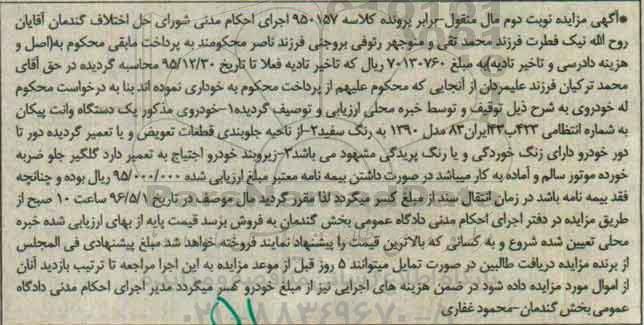 ●آگهی مزایده نوبت دوم مال منقول-برابر پرونده کلاسه ۹۵۰۱۵۷ اجرای احکام مدنی شورای حل اختلاف گندمان آقایان
روح الله نیک فطرت فرزند محمد تقی و منوچهر رئوفی بروجنی فرزند ناصر محکومند به پرداخت مابقی محکوم به(اصل و
هزینه دادرسی و تاخیر تادیه)به مبلغ ۷۰۱۳۰۷۶۰ ریال که تاخیر تادیه فعلا تا تاریخ ۹۵/۱۲/۳۰ محاسبه گردیده در حق آقای
محمد ترکیان فرزند علیمردان از آنجایی که محکوم علیهم از پرداخت محکوم به خوداری نموده اند بنا به درخواست محکوم
له خودروی به شرح ذیل توقیف و توسط خبره محلی ارزیابی و توصیف گردیده۱-خودروی مذکور یک دستگاه وانت پیکان
به شماره انتظامی ۴۲۳ب۳۳ایران۸۳ مدل ۱۳۹۰ به رنگ سفید۲-از ناحیه جلوبندی قطعات تعویض و یا تعمیر گردیده دور تا
دور خودرو دارای زنگ خوردگی و یا رنگ پریدگی مشهود می باشد۳-زیروبند خودرو احتیاج به تعمیر دارد گلگیر جلو ضربه
خورده موتور سالم و آماده به کار میباشد در صورت داشتن بیمه نامه معتبر مبلغ ارزیابی شده ۹۵/۰۰۰/۰۰۰ ریال بوده و چنانچه
فقد بیمه نامه باشد در زمان انتقال سند از مبلغ کسر میگردد لذا مقرر گردید مال موصف در تاریخ ۹۶/۵/۱ ساعت ۱۰ صبح از
طریق مزایده در دفتر اجرای احکام مدنی دادگاه عمومی بخش گندمان به فروش برسد قیمت پایه از بهای ارزیابی شده خبره
محلی تعیین شده شروع و به کسانی که بالاترین قیمت را پیشنهاد نمایند فروخته خواهد شد مبلغ پیشنهادی فی المجلس
از برنده مزایده دریافت طالبین در صورت تمایل میتوانند ۵ روز قبل از موعد مزایده به این اجرا مراجعه تا ترتیب بازدید آنان
از اموال مورد مزایده داده شود در ضمن هزینه های اجرایی نیز از مبلغ خودرو کسر میگردد مدیر اجرای احکام مدنی دادگاه
عمومی بخش گندمان-محمود غفاری